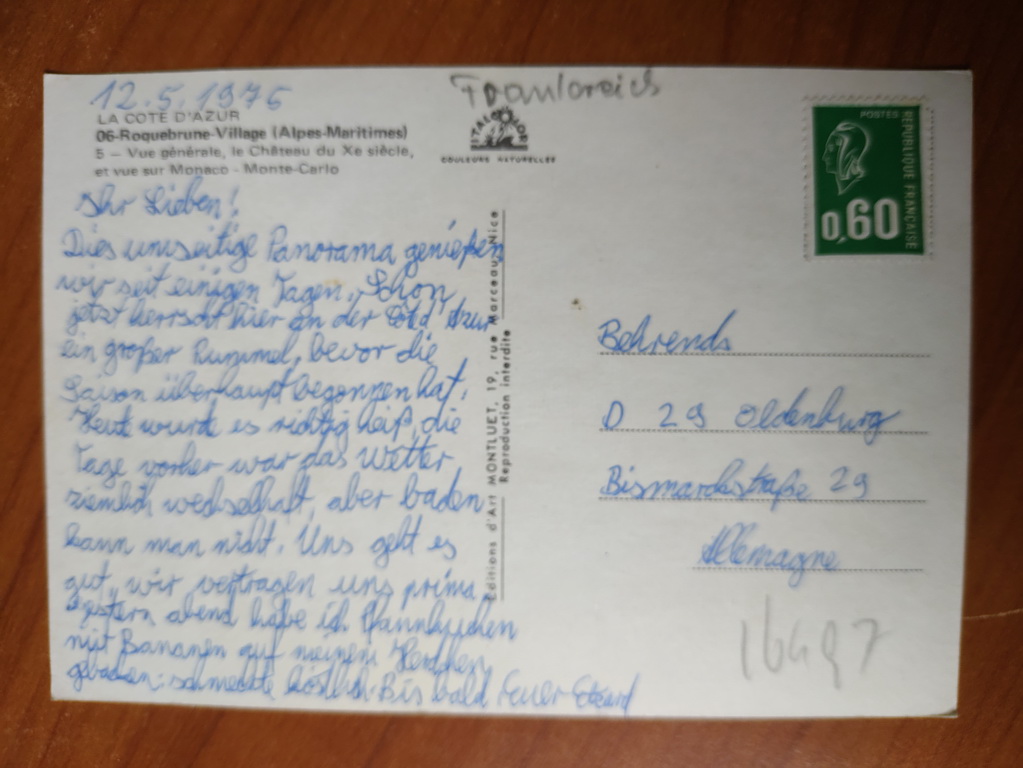 12.5.1976
LA COTE D'AZUR
06-Roquebrune-Village (Alpes-Maritimes)
5 - Vue générale, le Château du Xe siècle,
et vue sur Monaco - Monte-Carlo
Ihr Lieben!
Dies umseitige Panorama genießen
wir seit einigen Tagen. Schon
jetzt herrscht hier an der Côte d'Azur
ein großer Rummel, bevor die
Saison überhaupt begonnen hat.
Heute wurde es richtig heiß, die
Tage vorher war das Wetter
ziemlich wechselhaft, aber baden
kann man nicht. Uns geht es
gut, wir vertragen uns prima.
Gestern abend habe ich Pfannkuchen
mit Bananen auf meinem Herdchen
gebacken: schmeckte köstlich. Bis bald Euer
Frankreich
COULEURS NATURELLES
Editions d'Art MONTLUET, 19, rue Marceau, Nice
Reproduction interdite
POSTES
REPUBLIQUE FRANÇAISE
0,60
Behrends
D 29 Oldenburg
Bismarckstraße 29
Allemagne